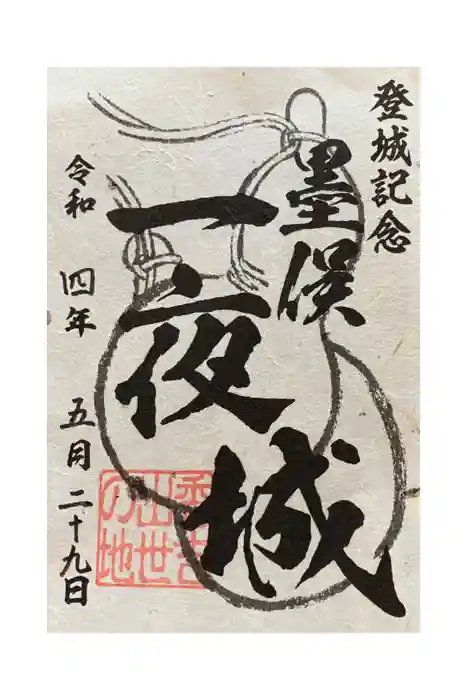 登城記念
墨俣
一夜城
令和 四年 五月 二十九日
秀吉
出世
の地